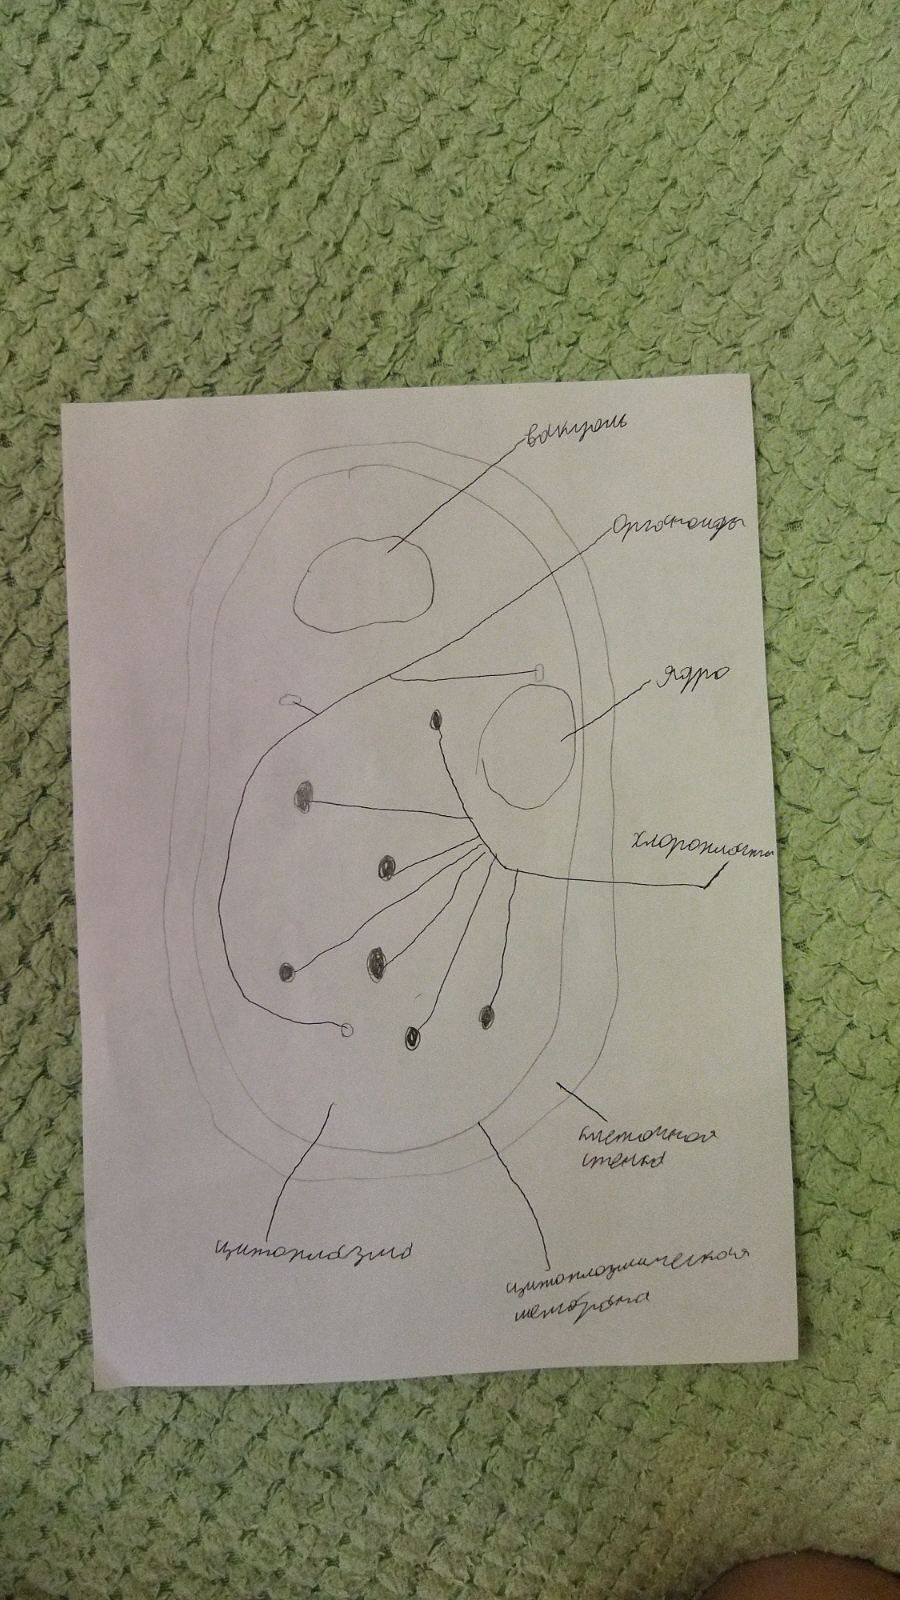 вакуоль
Органоиды
Ядро
хлоропласты
клеточная
стенка
цитоплазма
цитоплазматическая
мембрана